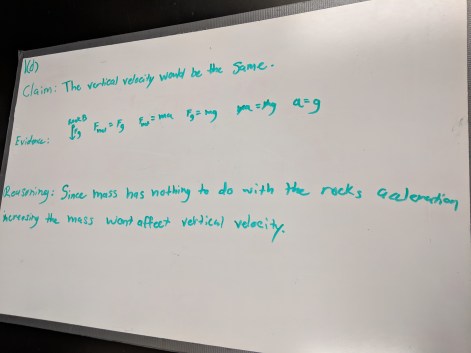 1(d)
Claim: The vertical velocity would be the same.
Evidence: ↓Fg Fnet = Fg Fnet = ma Fg = mg ma = mg a = g
Reasoning: Since mass has nothing to do with the rocks acceleration
increasing the mass wont affect vertical velocity.